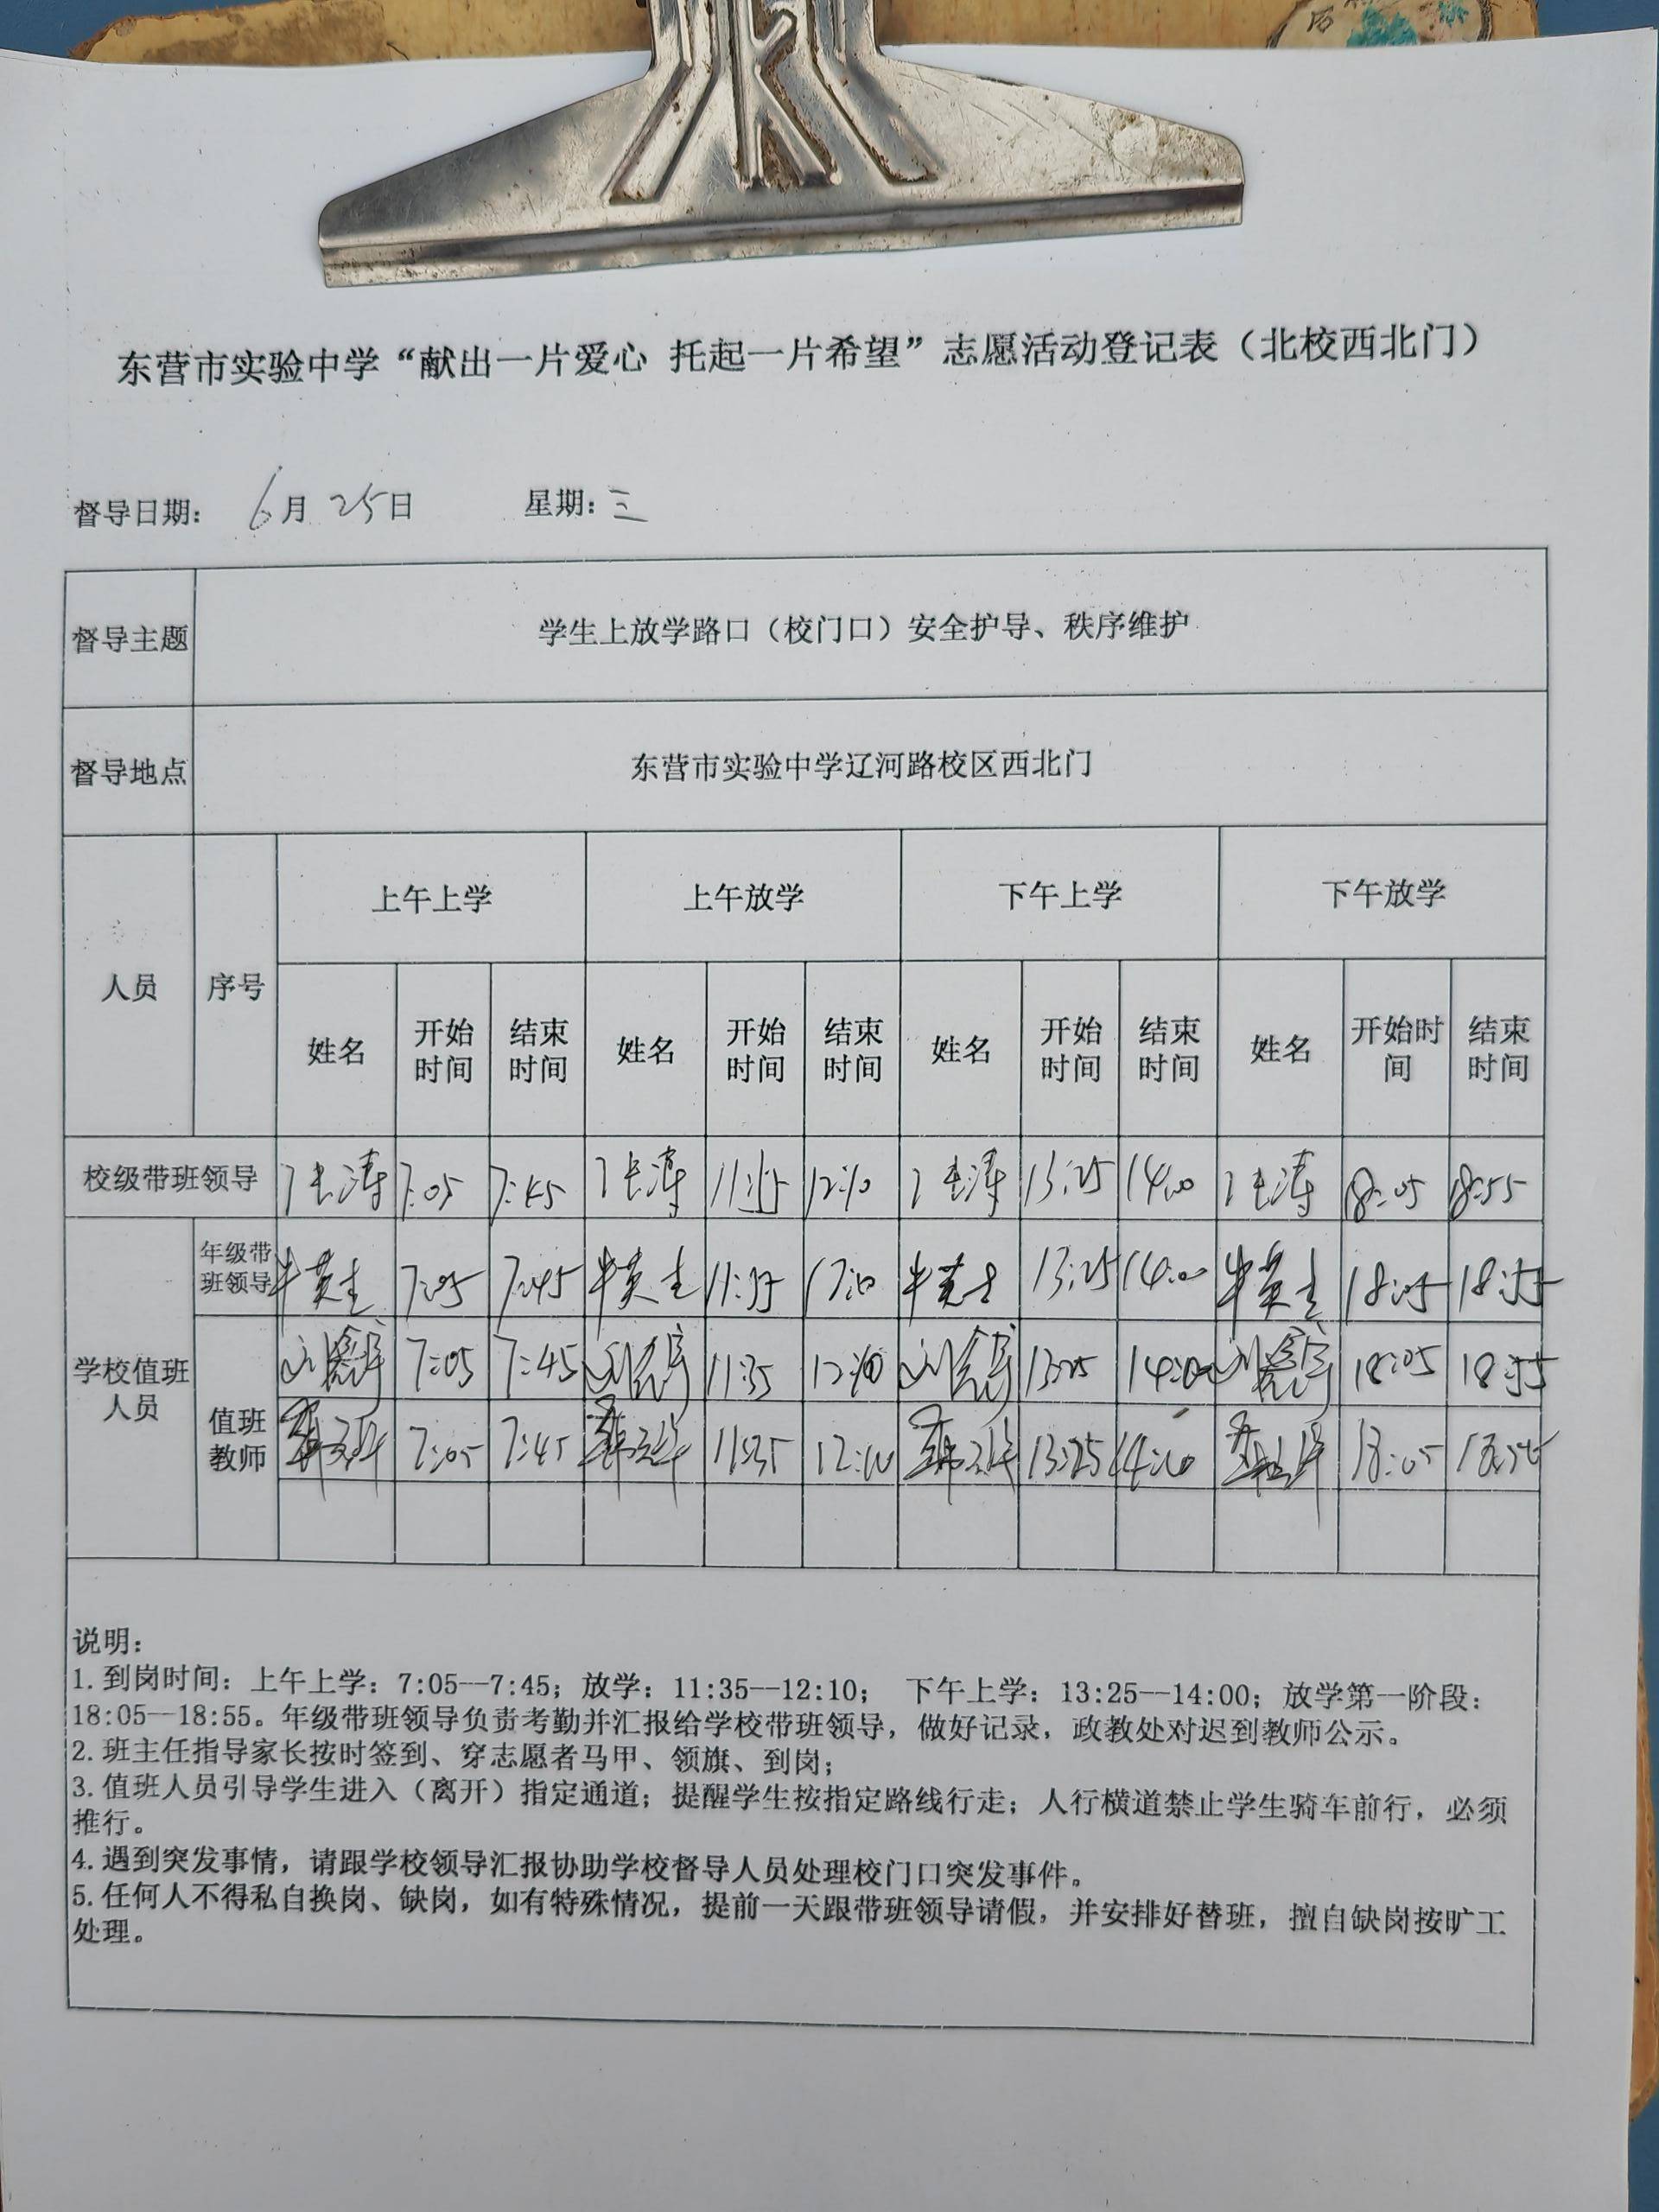 东营市实验中学“献出一片爱心 托起一片希望”志愿活动登记表（北校西北门）
督导日期: 6月25日 星期:三
督导主题 学生上放学路口（校门口）安全护导、秩序维护
督导地点 东营市实验中学辽河路校区西北门
人员 序号 上午上学 上午放学 下午上学 下午放学
姓名 开始时间 结束时间 姓名 开始时间 结束时间 姓名 开始时间 结束时间 姓名 开始时间 结束时间
校级带班领导 7:05 7:45 12:10 13:25 14:00 18:05 18:55
学校值班人员
年级带班领导 7:05 7:45 11:35 13:25 14:00 18:05 18:55
值班教师 7:05 7:45 11:35 12:10 13:25 14:00 18:05 18:55
7:05 7:45 11:35 12:10 13:25 14:00 18:05
说明:
1.到岗时间: 上午上学: 7:05--7:45; 放学: 11:35--12:10; 下午上学: 13:25--14:00; 放学第一阶段:
18:05--18:55。年级带班领导负责考勤并汇报给学校带班领导, 做好记录, 政教处对迟到教师公示。
2.班主任指导家长按时签到、穿志愿者马甲、领旗、到岗;
3.值班人员引导学生进入（离开）指定通道; 提醒学生按指定路线行走; 人行横道禁止学生骑车前行, 必须
推行。
4.遇到突发事情, 请跟学校领导汇报协助学校督导人员处理校门口突发事件。
5.任何人不得私自换岗、缺岗, 如有特殊情况, 提前一天跟带班领导请假, 并安排好替班, 擅自缺岗按旷工
处理。